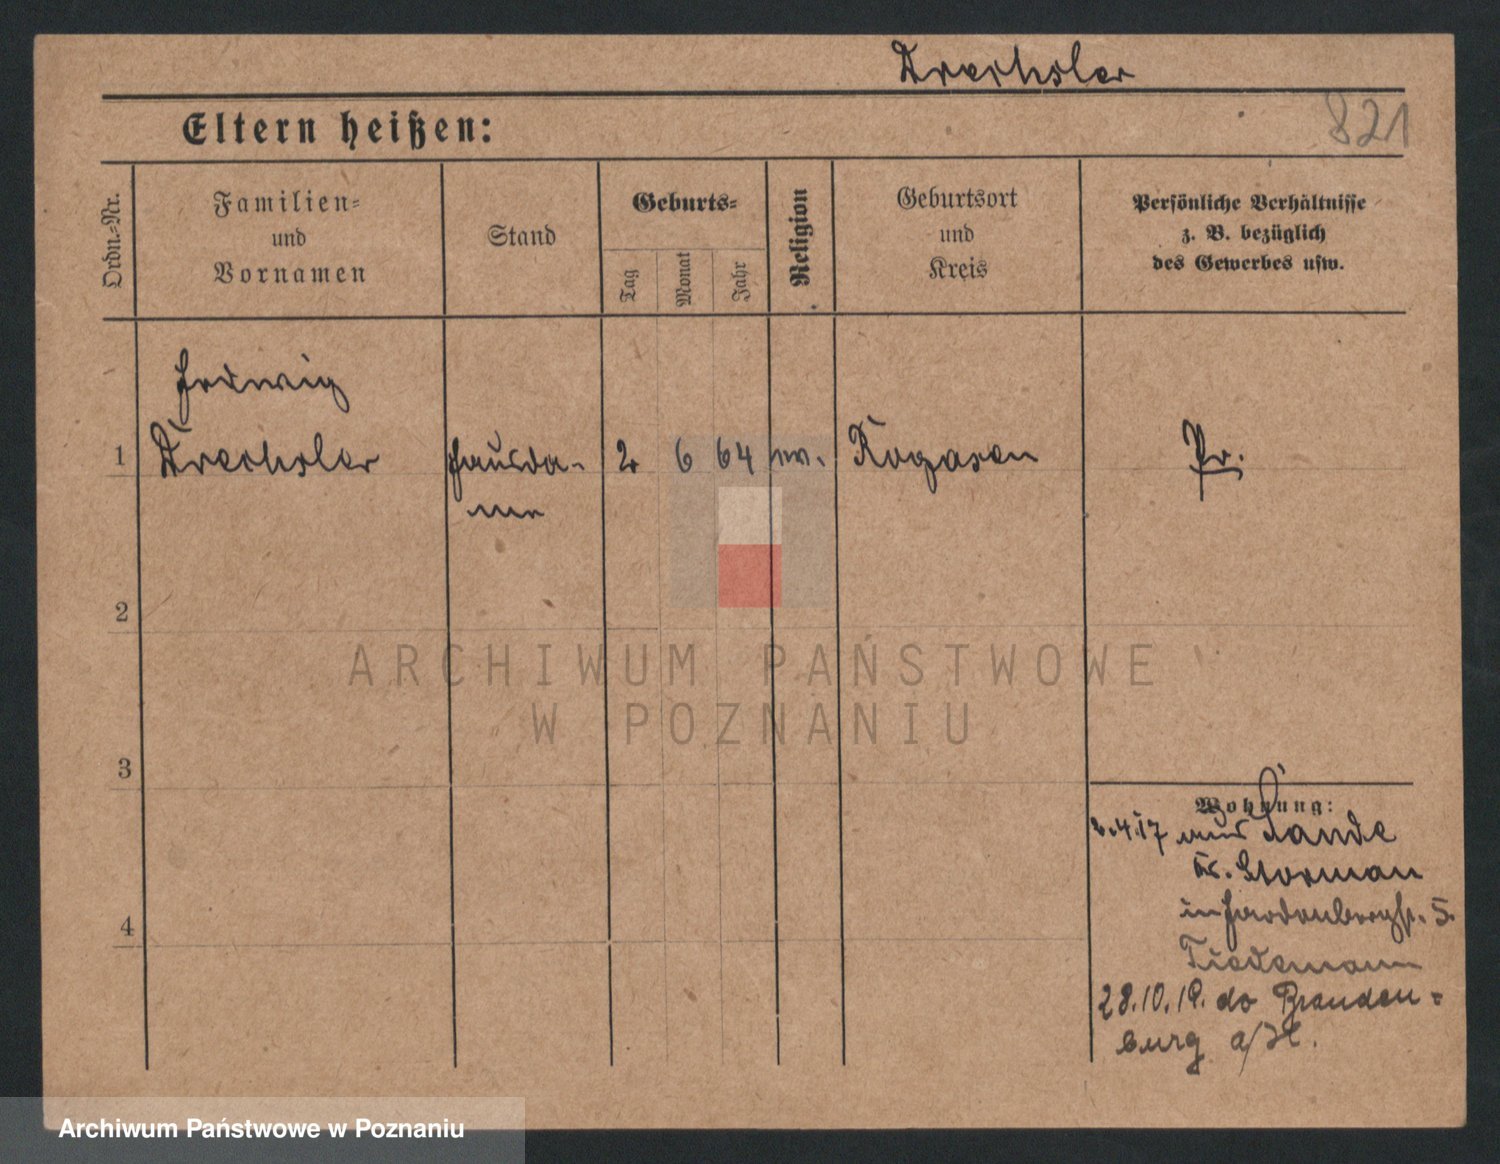 Drechsler
821
Eltern heißen:
Ordn.-Nr.
Familien-
und
Vornamen
Stand
Geburts-
Tag
Monat
Jahr
Religion
Geburtsort
und
Kreis
Persönliche Verhältnisse
z. B. bezüglich
des Gewerbes usw.
Hedwig
1 Drechsler Hausda- 2 6 64 ev. Rogasen Pr.
me
2
3
4
Wohnung:
2.4.17 aus Lande
Kr. Storman
in Hardenbergstr. 5.
Tiedemann
28.10.19. do Branden-
burg a/H.
ARCHIWUM PAŃSTWOWE
W POZNANIU
Archiwum Państwowe w Poznaniu